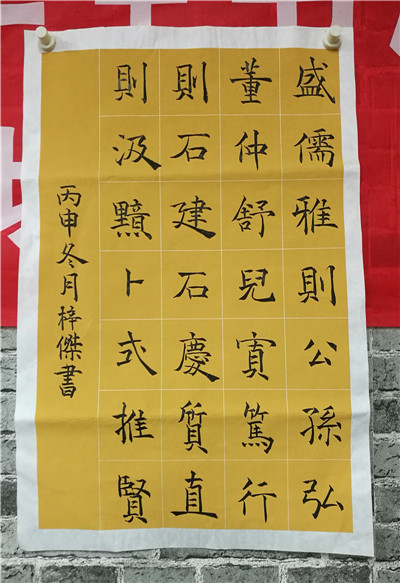 盛儒雅則公孫弘
董仲舒兒寬篤行
則石建石慶質直
則汲黯卜式推賢
丙申冬月梓傑書